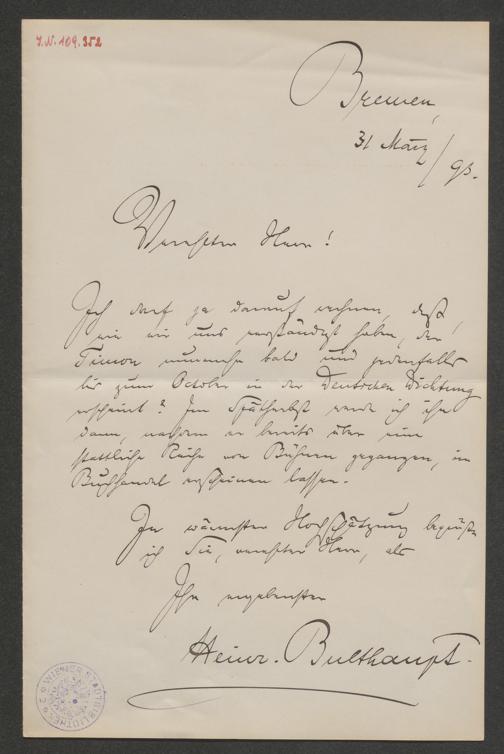 J.N. 109.352
Bremen,
31 März / 93.
Verehrter Herr!
Ich darf ja darauf rechnen, daß,
wie wir uns verständigt haben, der
Timon nunmehr bald und jedenfalls
bis zum October in der Deutschen Dichtung
erscheint? Im Spätherbst werde ich ihn
dann, nachdem er bereits über eine
stattliche Reihe von Bühnen gegangen, im
Buchhandel erscheinen lassen.
In wärmster Hochschätzung begrüße
ich Sie, verehrter Herr, als
Ihr ergebenster
Heinr. Bulthaupt.
WIENER STADTBIBLIOTHEK